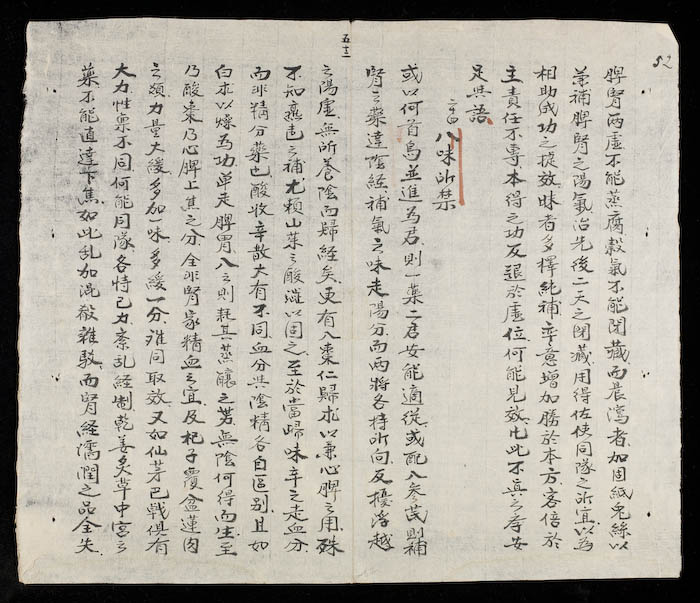 52
五十二
脾腎两虚不能蒸腐穀氣不能閉藏而晨瀉者加固紙兔絲以
兼補脾腎之陽氣治先後二天之閉藏用得佐使同隊之所宜以為
相助成功之捷效昧者多擇純補率意增加勝於本方客倍於
主責任不專本得之功反退於虚位何能見效比此不真之存安
足與語
言八味所禁
或以何首烏並進為君則一藥二君安能適從或配入參芪則補
腎之藥達陰經補氣之味走陽分而两將各持所向反擾浮越
之陽虚無所養陰而歸経矣更有入棗仁歸朮以兼心脾之用殊
不知熟地之補尤賴山茱之酸澁以固之至於當歸味辛之走血分
而非精分藥也酸收辛散大有不同血分與陰精各自區别且如
白朮以燥為功单走脾胃入之則耗其蒸釀之势無陰何得而生至
乃酸棗乃心脾上焦之分全非腎家精血之宜及杞子覆盆蓮肉
之類力量大緩多加一味多緩一分难同取效又如仙茅巴戟俱有
大力性禀不同何能同隊各恃己力紊乱經制乾姜炙草中宮之
藥不能直達下焦如此乱加混散雜駁而腎経濡潤之品全失